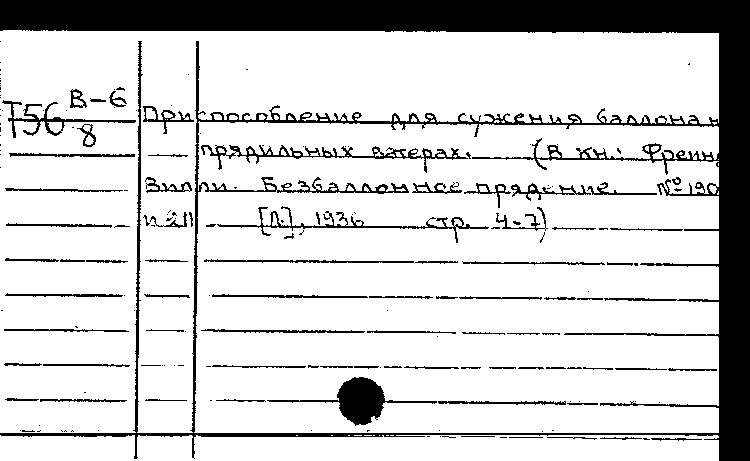 Т56 В-6/8
Приспособление для сужения баллона н
прядильных ватерах. (В кн.: Фреин
Вилли. Безбаллонное прядение. № 190
и 211 [Л.], 1936 стр. 4-7)